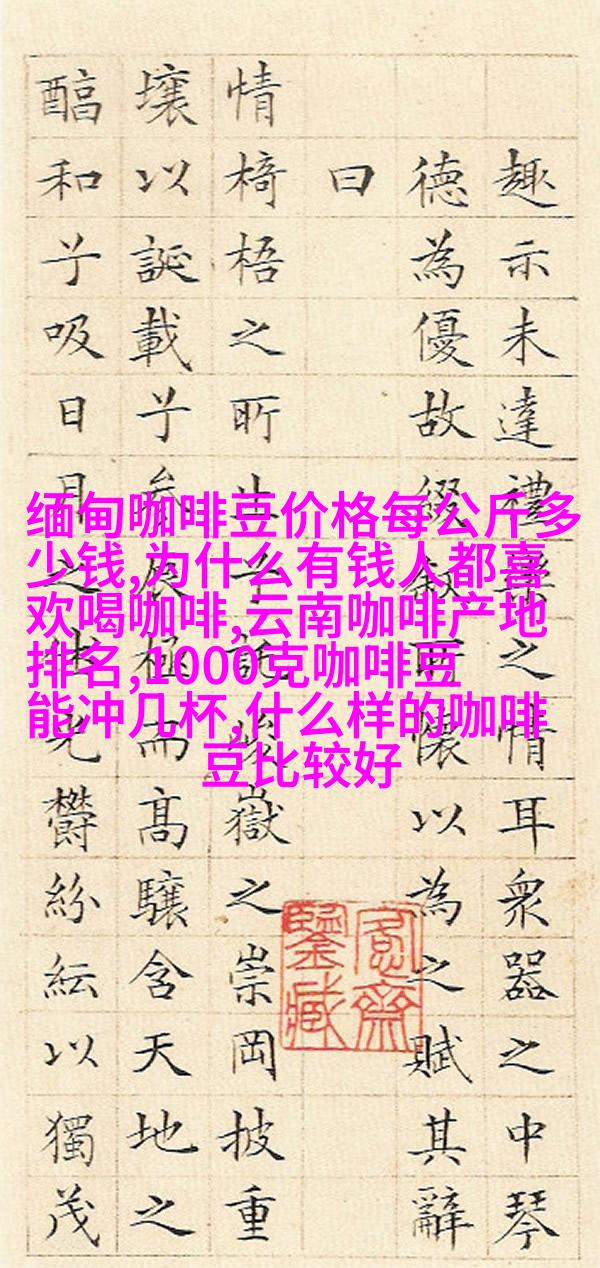 趣示未達禮樂之情耳衆器之中琴
德為優故綴叙所懷以為之賦其辭
曰
情椅梧之所生兮託峻嶽之崇岡披重
壤以誕載兮參辰極而高驤含天地之
醕和兮吸日月之休光鬱紛紜以獨茂
缅甸咖啡豆价格每公斤多
少钱,为什么有钱人都喜
欢喝咖啡,云南咖啡产地
排名,1000克咖啡豆
能冲几杯,什么样的咖啡
豆比较好
愙齋
鑒藏